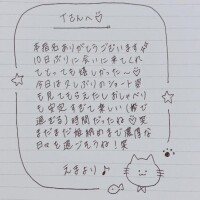 Tさんへ♡
本指名ありがとうございます♪
10日ぶりに会いに来てくれ
てとっても嬉しかったー♡
今日は久しぶりのショート姿
も見てもらえたしおしゃべり
も安定すぎて楽しい(秒で
過ぎる)時間だったね♡笑
まだまだ姫納めまで濃厚な
日々を過ごそうね！笑
えまより♪